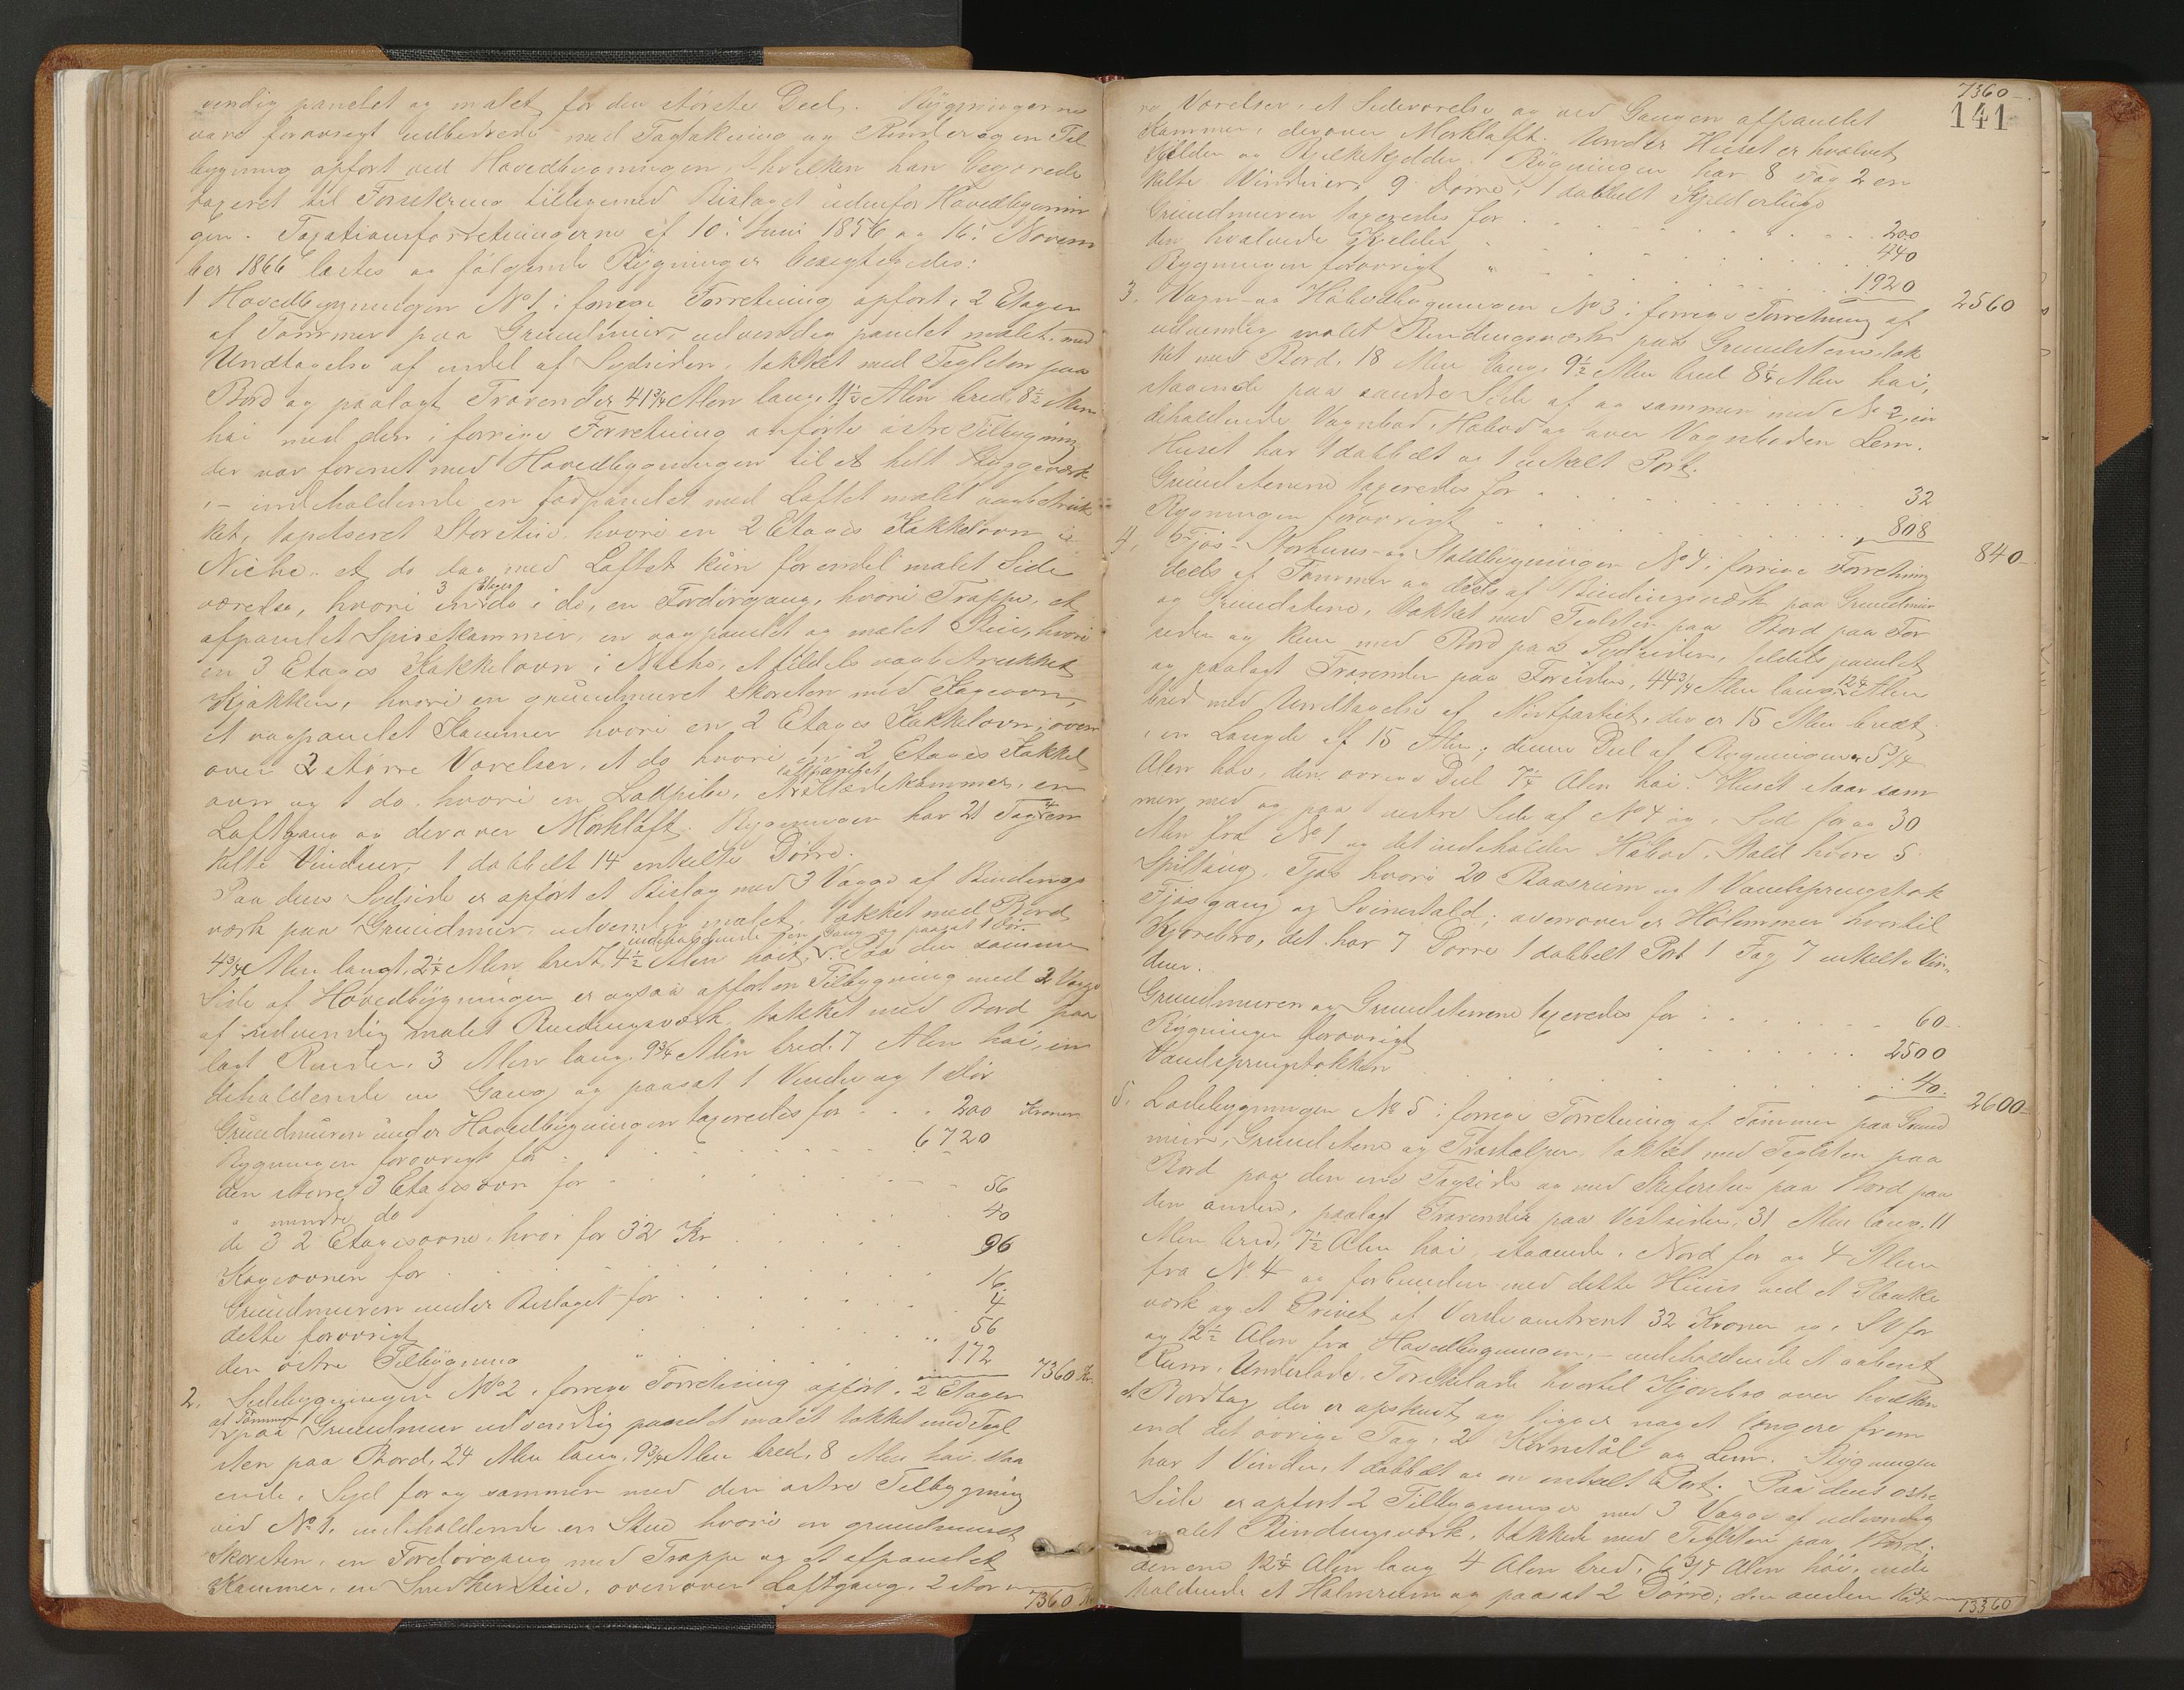 vendig panelet og malet for den største Deel. Bygningerne
vare forøvrigt udbedrede med Tagtækning og Render og en Til
bygning opført ved Hovedbygningen, hvilken han begjærede
taxeret til Forsikring tilligemed Bislaget udenfor Hovedbygnin
gen. Taxationsforretningerne af 10. Juni 1856 og 16. Novem
ber 1866 læstes og følgende Bygninger besigtigedes:
1 Hovedbygningen No 1 i forrige Forretning opført i 2 Etager
af Tømmer paa Grundmur, udvendig panelet malet med
Undtagelse af endel af Sydsiden, tækket med Teglsten paa
Bord og paalagt Trærender 41 3/4 Alen lang, 11 1/2 Alen bred, 8 1/2 Alen
høi med den i forrige Forretning anførte østre Tilbygning
der var forenet med Hovedbygningen til et helt Byggeværk
, - indeholdende en panelet med Loftet malet
ket, tapetseret Storstue, hvori en 2 Etages Kakkelovn i
Niche, et do med Loftet kun for endel malet Side
værelse, hvori en 3 Etages do i do, en Fordørgang, hvori Trappe, et
afpanelet Spisekammer, en panelet og malet Stue, hvori
en 3 Etages Kakkelovn i Niche, et tildels
Kjøkken, hvori en grundmuret Skorsten med Kogeovn,
et panelet Kammer hvori en 2 Etages Kakkelovn; oven
over 2 større Værelser, et do hvori en 2 Etages Kakkel
ovn og 1 do. hvori en Ladpibe, et afpanelet Klædekammer, en
Loftgang og derover Mørkloft. Bygningen har 21 Fag 4 en
kelte Vinduer, 1 dobbelt 14 enkelte Dørre.
Paa dens Sydside er opført et Bislag med 3 Vægge af Bindings
værk paa Grundmur udvendig malet, tækket med Bord
4 3/4 Alen langt, 2 1/4 Alen bredt, 4 1/2 Alen høit, indeholdende en Gang og paasat 1 Dør. Paa den samme
Side af Hovedbygningen er ogsaa opført en Tilbygning med 2 Vægge
af udvendig malet Bindingsværk, tækket med Bord paa
lagt Render, 3 Alen lang, 9 3/4 Alen bred, 7 Alen høi, in
deholdende en Gang og paasat 1 Vindu og 1 Dør
Grundmuren under Hovedbygningen taxeredes for 200 Kroner
Bygningen forøvrigt for 6720
den større 3 Etagesovn for 56
" mindre do 40
de 3 2 Etagesovne, hver for 32 Kr 96
Kogeovnen for 16
Grundmuren under Bislaget for 4
dette forøvrigt 56
den østre Tilbygning 172 7360 Kr.
2. Sidebygningen No 2 i forrige Forretning opført i 2 Etager
af Tømmer paa Grundmur udvendig panelet malet tækket med Tegl
sten paa Bord, 24 Alen lang, 9 3/4 Alen bred, 8 Alen høi, staa
ende i Syd for og sammen med den østre Tilbygning
ved No 1, indeholdende en Stue hvori en grundmuret
Skorsten, en Fordørgang med Trappe og et afpanelet
Kammer, en Snedkerstue, ovenover Loftgang, 2 stør
7360 Kr
7360
141
re Værelser, et Sideværelse og ved Gangen afpanelet
Kammer, derover Mørkloft. Under Huset er hvælvet
Kjelder og Bjelkekjelder. Bygningen har 8 Fag 2 en
kelte Vinduer, 9 Dørre, 1 dobbelt Kjelderluge
Grundmuren taxeredes for 200
den hvælvede Kjelder " 440
Bygningen forøvrigt " 1920 2560
3. Vogn- og Høbodbygningen No 3 i forrige Forretning af
udvendig malet Bindingsværk paa Grundstene, tæk
ket med Bord, 18 Alen lang, 9 1/2 Alen bred 8 1/4 Alen høi,
staaende paa søndre Side af og sammen med No 2, in
deholdende Vognbod, Høbod og over Vognboden Lem.
Huset har 1 dobbelt og 1 enkelt Port.
Grundstenene taxeredes for 32
Bygningen forøvrigt 808 840
4. Fjøs- Storhuus- og Staldbygningen No 4 i forrige Forretning
deels af Tømmer og deels af Bindingsværk paa Grundmur
og Grundstene, tækket med Teglsten paa Bord paa For
siden og kun med Bord paa Sydsiden, tildels panelet
og paalagt Trærender paa Forsiden, 44 3/4 Alen lang 12 1/4 Alen
bred med Undtagelse af Midtpartiet, der er 15 Alen bredt
i en Længde af 15 Alen; denne Deel af Bygningen er 5 3/4
Alen høi, den øvrige Deel 7 1/4 Alen høi. Huset staar sam
men med og paa vestre Side af No 4 og i Syd for og 30
Alen fra No 1 og det indeholder Høbod, Stald hvori 5
Spiltaug, Fjøs hvori 20 Baasrum og 1 Vandspringstok
Fjøsgang og Svinestald; ovenover er Hølemmer hvortil
Kjørebro, det har 7 Dørre 1 dobbelt Port 1 Fag 7 enkelte Vin-
duer.
Grundmuren og Grundstenene taxeredes for 60
Bygningen forøvrigt 2500
Vandspringstokken 40 2600
5. Ladebygningen No 5 i forrige Forretning af Tømmer paa Grund
mur, Grundstene og Træstolper, tækket med Teglsten paa
Bord paa den ene Tagside og med Skifersten paa Bord paa
den anden, paalagt Trærender paa Vestsiden, 31 Alen lang, 11
Alen bred, 7 1/2 Alen høi, staaende i Nord for og 4 Alen
fra No 4 og forbunden med dette Huus ved et Planke
værk og et Privet af Værdi omtrent 32 Kroner og i SV for
og 12 1/2 Alen fra Hovedbygningen, - indeholdende et aabent
Rum, Underlade, Træskelade hvortil Kjørebro over hvilken
et Bordtag der er opskudt og ligger noget længere frem
end det øvrige Tag, 2 Kornstål og Lem. Bygningen
har 1 Vindu, 1 dobbelt og en enkelt Port. Paa dens østre
Side er opført 2 Tilbygninger med 3 Vægge af udvendig
malet Bindingsværk, tækkede med Teglsten paa Bord;
den ene 12 1/4 Alen lang 4 Alen bred, 6 3/4 Alen høi, inde
holdende et Halmrum og paasat 2 Dørre; den anden 10 3/4
13360